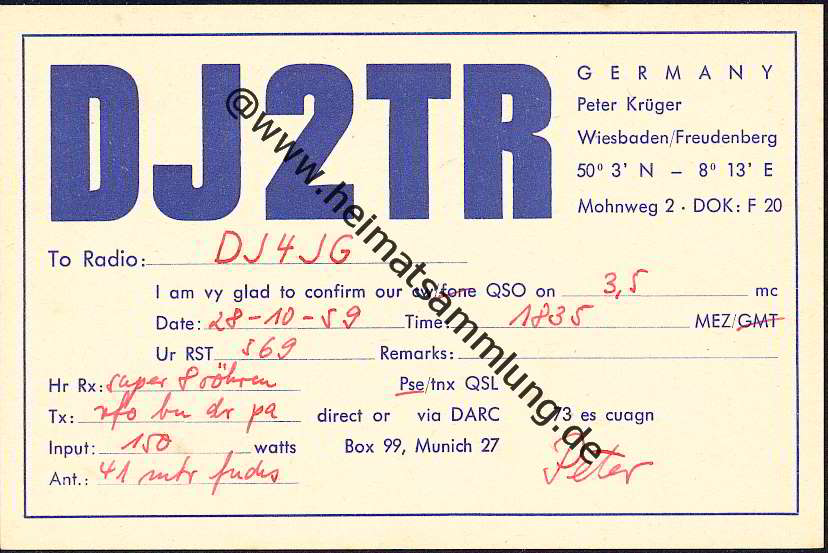 DJ2TR
GERMANY
Peter Krüger
Wiesbaden/Freudenberg
50° 3' N – 8° 13' E
Mohnweg 2 · DOK: F 20
To Radio: DJ4JG
I am vy glad to confirm our cw/fone QSO on 3,5 mc
Date: 28-10-59 Time: 1835 MEZ/GMT
Ur RST 569 Remarks:
Hr Rx: super 8 röhren Pse/tnx QSL
Tx: vfo bu dr pa direct or via DARC 73 es cuagn
Input: 150 watts Box 99, Munich 27
Ant.: 41 mtr fuchs Peter
@www.heimatsammlung.de